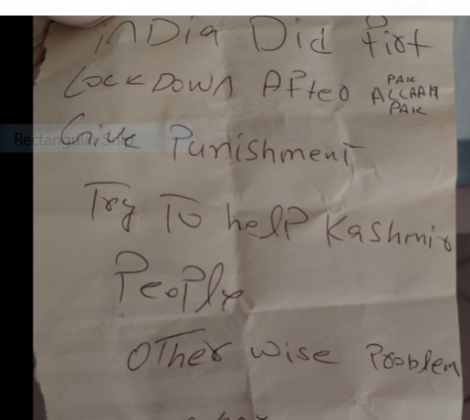 INDIA Did first
LOCKDOWN AFteD PAK ALLAAH PAK
Give Punishment
Try To help Kashmir
PeoPle
OTher wise Problem